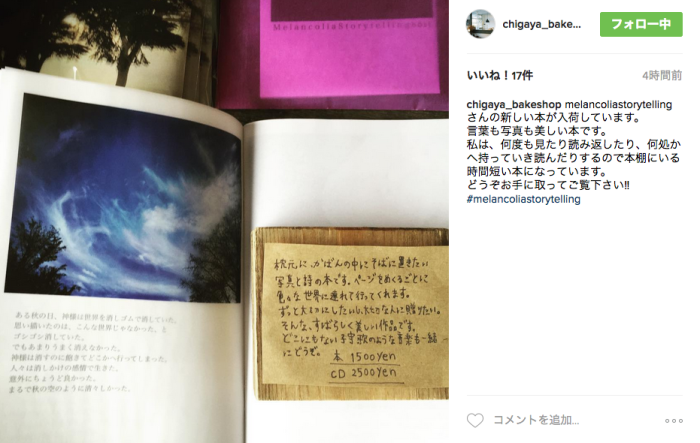 MelancoliaStorytelling
ある秋の日、神様は世界を消しゴムで消していた。
思い描いたのは、こんな世界じゃなかった。と
ゴシゴシ消していた。
でもあまりうまく消えなかった。
神様は消すのに飽きてどこかへ行ってしまった。
人々は消しかけの感情で生きた。
意外にちょうど良かった。
まるで秋の空のように清々しかった。
枕元に、かばんの中に、そばに置きたい
写真と詩の本です。ページをめくるごとに
色々な世界に連れて行ってくれます。
ずっと大切にしたいし、大切な人に贈りたい。
そんな、すばらしく美しい作品です。
どこにもない子守歌のような音楽も一緒
にどうぞ。
本 1500yen
CD 2500yen
chigaya_bake...
フォロー中
いいね！17件
4時間前
chigaya_bakeshop melancoliastorytelling
さんの新しい本が入荷しています。
言葉も写真も美しい本です。
私は、何度も見たり読み返したり、何処か
へ持っていき読んだりするので本棚にいる
時間短い本になっています。
どうぞお手に取ってご覧下さい!!
#melancoliastorytelling
コメントを追加...